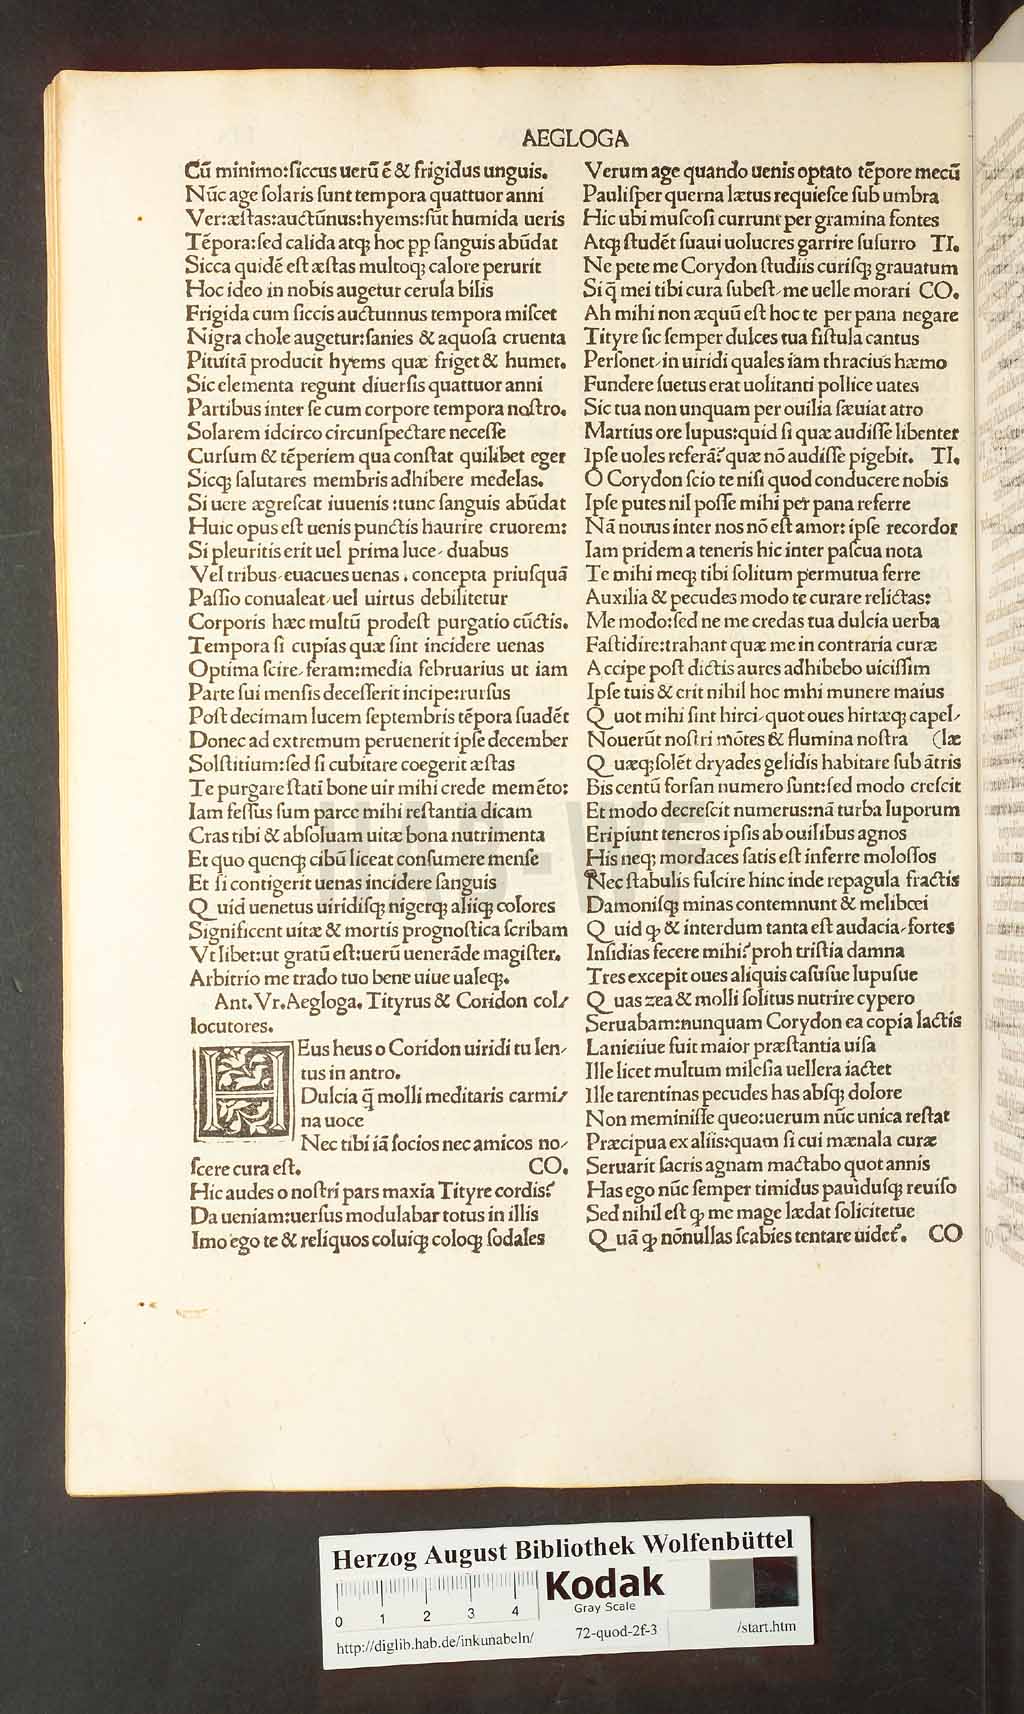 AEGLOGA
Cũ minimo:ſiccus uerũ ẽ & frigidus unguis.
Nũc age ſolaris ſunt tempora quattuor anni
Ver:æſtas:auctũnus:hyems:ſũt humida ueris
Tẽpora:ſed calida atq; hoc ꝓꝑ ſanguis abũdat
Sicca quidẽ eſt æſtas multoq; calore perurit
Hoc ideo in nobis augetur cerula bilis
Frigida cum ſiccis auctunnus tempora miſcet
Nigra chole augetur:ſanies & aquoſa cruenta
Pituitã producit hyems quæ friget & humet.
Sic elementa regunt diuerſis quattuor anni
Partibus inter ſe cum corpore tempora noſtro.
Solarem idcirco circunſpectare neceſſe
Curſum & tẽperiem qua conſtat quilibet eger
Sicq; ſalutares membris adhibere medelas.
Si uere ægreſcat iuuenis:tunc ſanguis abũdat
Huic opus eſt uenis punctis haurire cruorem:
Si pleuritis erit uel prima luce, duabus
Vel tribus, euacues uenas. concepta priuſquã
Paſſio conualeat, uel uirtus debilitetur
Corporis hæc multũ prodeſt purgatio cũctis.
Tempora ſi cupias quæ ſint incidere uenas
Optima ſcire, feram:media februarius ut iam
Parte ſui menſis deceſſerit incipe:rurſus
Poſt decimam lucem ſeptembris tẽpora ſuadẽt
Donec ad extremum peruenerit ipſe december
Solſtitium:ſed ſi cubitare coegerit æſtas
Te purgare ſtati bone uir mihi crede memẽto:
Iam feſſus ſum parce mihi reſtantia dicam
Cras tibi & abſoluam uitæ bona nutrimenta
Et quo quenq; cibũ liceat conſumere menſe
Et ſi contigerit uenas incidere ſanguis
Quid uenetus uiridiſq; nigerq; aliiq; colores
Significent uitæ & mortis prognoſtica ſcribam
Vt libet:ut gratũ eſt:uerũ uenerãde magiſter.
Arbitrio me trado tuo bene uiue ualeq;.
Ant. Vr. Aegloga. Tityrus & Coridon col/
locutores.
HEus heus o Coridon uiridi tu len,
tus in antro.
Dulcia q̃ molli meditaris carmi/
na uoce
Nec tibi iã ſocios nec amicos no,
ſcere cura eſt. CO.
Hic audes o noſtri pars maxĩa Tityre cordis?
Da ueniam:uerſus modulabar totus in illis
Imo ego te & reliquos coluiq; coloq; ſodales
Verum age quando uenis optato tẽpore mecũ
Pauliſper querna lætus requieſce ſub umbra
Hic ubi muſcoſi currunt per gramina fontes
Atq; ſtudẽt ſuaui uolucres garrire ſuſurro TI.
Ne pete me Corydon ſtudiis curiſq; grauatum
Si q̃ mei tibi cura ſubeſt, me uelle morari CO.
Ah mihi non æquũ eſt hoc te per pana negare
Tityre ſic ſemper dulces tua fiſtula cantus
Perſonet, in uiridi quales iam thracius hæmo
Fundere ſuetus erat uolitanti pollice uates
Sic tua non unquam per ouilia ſæuiat atro
Martius ore lupus:quid ſi quæ audiſſe libenter
Ipſe uoles referã? quæ nõ audiſſe pigebit. TI.
O Corydon ſcio te niſi quod conducere nobis
Ipſe putes nil poſſe mihi per pana referre
Nã nouus inter nos nõ eſt amor: ipſe recordor
Iam pridem a teneris hic inter paſcua nota
Te mihi meq; tibi ſolitum permutua ferre
Auxilia & pecudes modo te curare relictas:
Me modo:ſed ne me credas tua dulcia uerba
Faſtidire:trahant quæ me in contraria curæ
Accipe poſt dictis aures adhibebo uiciſſim
Ipſe tuis & erit nihil hoc mihi munere maius
Quot mihi ſint hirci, quot oues hirtæq; capel,
Nouerũt noſtri mõtes & flumina noſtra (læ
Quæq; ſolẽt dryades gelidis habitare ſub ãtris
Bis centũ forſan numero ſunt:ſed modo creſcit
Et modo decreſcit numerus:nã turba luporum
Eripiunt teneros ipſis ab ouilibus agnos
His neq; mordaces ſatis eſt inferre moloſſos
Nec ſtabulis fulcire hinc inde repagula fractis
Damoniſq; minas contemnunt & melibœi
Quid ꝙ & interdum tanta eſt audacia, fortes
Inſidias fecere mihi? proh triſtia damna
Tres excepit oues aliquis caſuſue lupuſue
Quas zea & molli ſolitus nutrire cypero
Seruabam:nunquam Corydon ea copia lactis
Lanieiiue fuit maior præſtantia uiſa
Ille licet multum mileſia uellera iactet
Ille tarentinas pecudes has abſq; dolore
Non meminiſſe queo:uerum nũc unica reſtat
Præcipua ex aliis:quam ſi cui mænala curæ
Seruarit ſacris agnam mactabo quot annis
Has ego nũc ſemper timidus pauiduſq; reuiſo
Sed nihil eſt ꝙ me mage lædat ſolicitetue
Quã ꝙ nõnullas ſcabies tentare uidet̃. CO
HAB-WF
Herzog August Bibliothek Wolfenbüttel
0 1 2 3 4
Kodak
Gray Scale
http://diglib.hab.de/inkunabeln/ 72-quod-2f-3 /start.htm